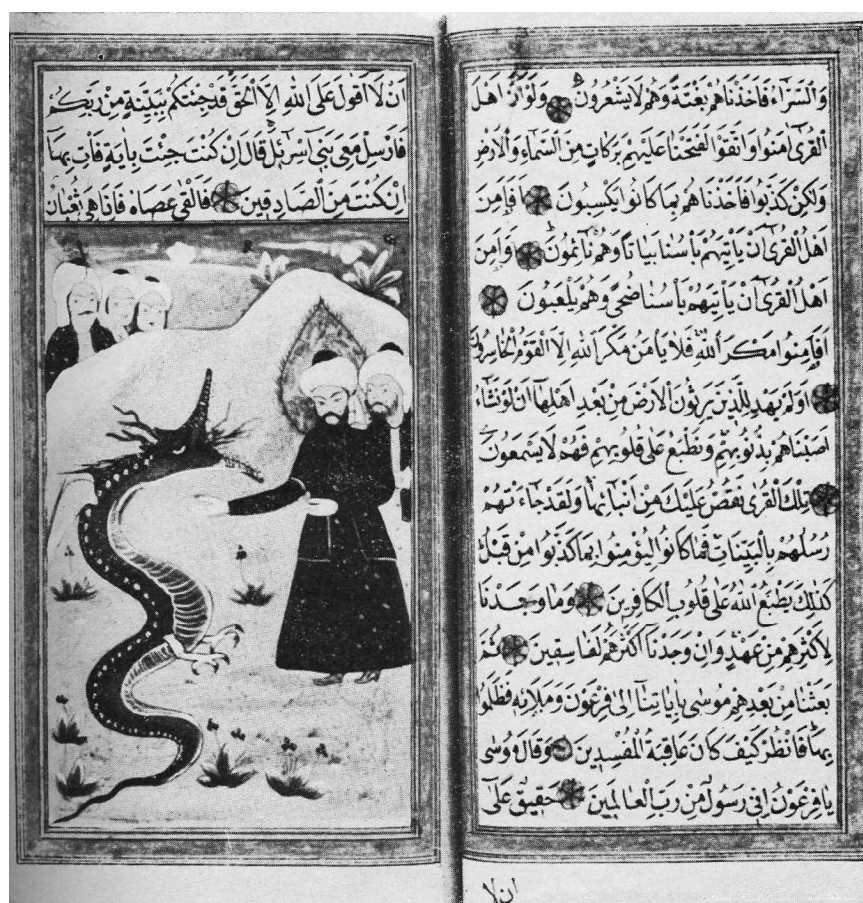 وَالسَّرَّاءُ فَاَخَذْنَاهُمْ بَغْتَةً وَهُمْ لَا يَشْعُرُونَ وَلَوْ اَنَّ اَهْلَ
الْقُرٰٓى اٰمَنُوا وَاتَّقَوْا لَفَتَحْنَا عَلَيْهِمْ بَرَكَاتٍ مِنَ السَّمَاءِ وَالْاَرْضِ
وَلٰكِنْ كَذَّبُوا فَاَخَذْنَاهُمْ بِمَا كَانُوا يَكْسِبُونَ اَفَاَمِنَ
اَهْلُ الْقُرٰٓى اَنْ يَاْتِيَهُمْ بَاْسُنَا بَيَاتًا وَهُمْ نَائِمُونَ اَوَاَمِنَ
اَهْلُ الْقُرٰٓى اَنْ يَاْتِيَهُمْ بَاْسُنَا ضُحًى وَهُمْ يَلْعَبُونَ
اَفَاَمِنُوا مَكْرَ اللّٰهِ فَلَا يَاْمَنُ مَكْرَ اللّٰهِ اِلَّا الْقَوْمُ الْخَاسِرُونَ
اَوَلَمْ يَهْدِ لِلَّذِينَ يَرِثُونَ الْاَرْضَ مِنْ بَعْدِ اَهْلِهَا اَنْ لَوْ نَشَاءُ
اَصَبْنَاهُمْ بِذُنُوبِهِمْ وَنَطْبَعُ عَلٰى قُلُوبِهِمْ فَهُمْ لَا يَسْمَعُونَ
تِلْكَ الْقُرٰى نَقُصُّ عَلَيْكَ مِنْ اَنْبَائِهَا وَلَقَدْ جَاءَتْهُمْ
رُسُلُهُمْ بِالْبَيِّنَاتِ فَمَا كَانُوا لِيُؤْمِنُوا بِمَا كَذَّبُوا مِنْ قَبْلُ
كَذٰلِكَ يَطْبَعُ اللّٰهُ عَلٰى قُلُوبِ الْكَافِرِينَ وَمَا وَجَدْنَا
لِاَكْثَرِهِمْ مِنْ عَهْدٍ وَاِنْ وَجَدْنَا اَكْثَرَهُمْ لَفَاسِقِينَ ثُمَّ
بَعَثْنَا مِنْ بَعْدِهِمْ مُوسٰى بِاٰيَاتِنَا اِلٰى فِرْعَوْنَ وَمَلَائِهِ فَظَلَمُوا
بِهَا فَانْظُرْ كَيْفَ كَانَ عَاقِبَةُ الْمُفْسِدِينَ وَقَالَ مُوسٰى
يَا فِرْعَوْنُ اِنِّي رَسُولٌ مِنْ رَبِّ الْعَالَمِينَ حَقِيقٌ عَلٰٓى
ان لا
اَنْ لَا اَقُولَ عَلَى اللّٰهِ اِلَّا الْحَقَّ قَدْ جِئْتُكُمْ بِبَيِّنَةٍ مِنْ رَبِّكُمْ
فَاَرْسِلْ مَعِيَ بَنِي اِسْرَائِلَ قَالَ اِنْ كُنْتَ جِئْتَ بِاٰيَةٍ فَاْتِ بِهَا
اِنْ كُنْتَ مِنَ الصَّادِقِينَ فَاَلْقٰى عَصَاهُ فَاِذَا هِيَ ثُعْبَانٌ